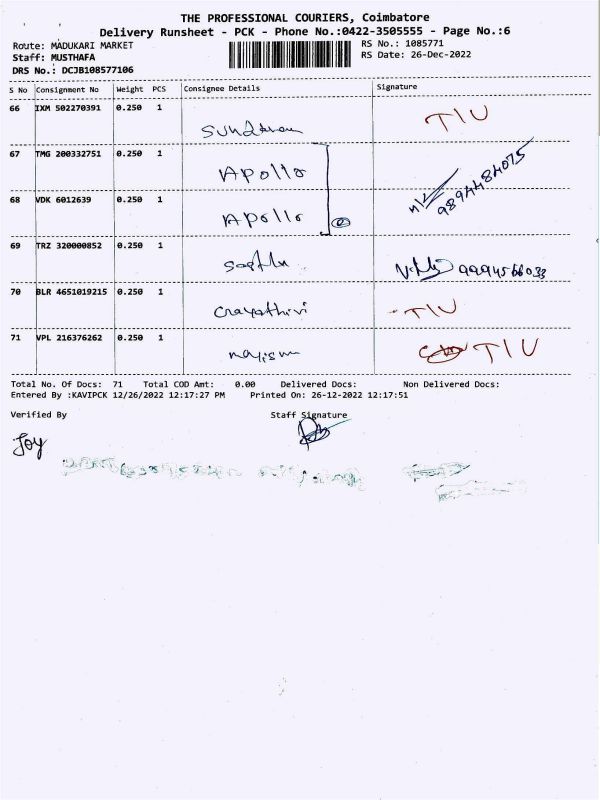 THE PROFESSIONAL COURIERS, Coimbatore
Delivery Runsheet - PCK - Phone No.:0422-3505555 - Page No.:6
Route: MADUKARI MARKET RS No.: 1085771
Staff: MUSTHAFA RS Date: 26-Dec-2022
DRS No.: DCJB108577106
S No Consignment No Weight PCS Consignee Details Signature
66 IXM 502270391 0.250 1 TIU
67 TMG 200332751 0.250 1 Apollo
9894484075
68 VDK 6012639 0.250 1 Apollo
69 TRZ 320000852 0.250 1
70 BLR 4651019215 0.250 1 Crayathivi TIU
71 VPL 216376262 0.250 1 TIU
Total No. Of Docs: 71 Total COD Amt: 0.00 Delivered Docs: Non Delivered Docs:
Entered By :KAVIPCK 12/26/2022 12:17:27 PM Printed On: 26-12-2022 12:17:51
Verified By Staff Signature
Joy